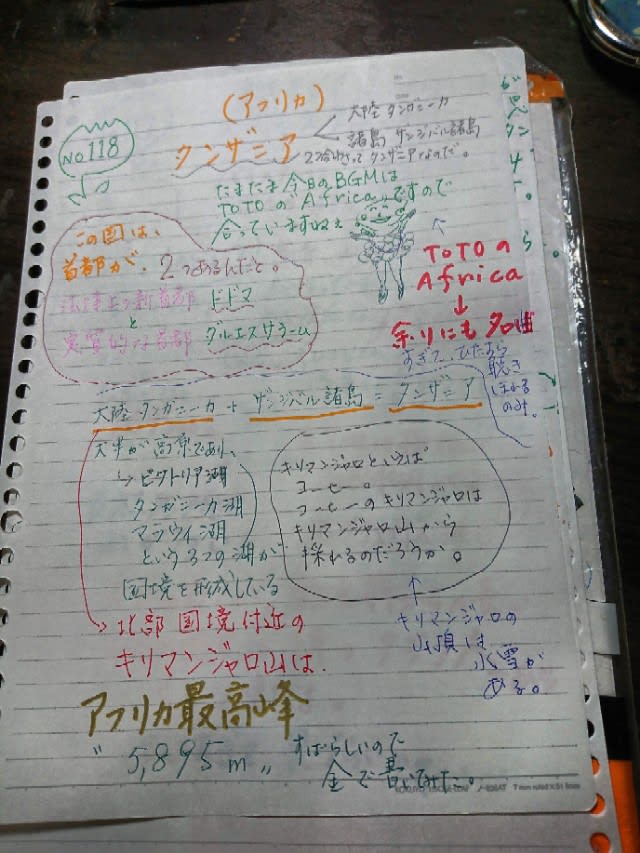 (アフリカ)
No 118
タンザニア
大陸 タンガニーカ
諸島 ザンジバル諸島
2つ合わさってタンザニアなのだ。
たまたま今日のBGMは
TOTOの"Africa"ですので
合っていますねぇ
この国は、
首都が、2つあるんだと。
法律上の新首都 ドドマ
と
実質的な首都 ダルエスサラーム
TOTOの
Africa
↓
余りにも名曲
すぎて、ひたすら
聴き
ほれる
のみ。
大陸 タンガニーカ + ザンジバル諸島 = タンザニア
大半が高原であり、
→ビクトリア湖
タンガニーカ湖
マラウィ湖
という3つの湖が
国境を形成している
キリマンジャロといえば
コーヒー。
コーヒーのキリマンジャロは
キリマンジャロ山から
採れるのだろうか。
→北部国境付近の
キリマンジャロ山は、
キリマンジャロの
山頂は、
氷雪が
ある。
アフリカ最高峰
"5,895m"
すばらしいので
金で書いてみた。
7mm ruled×31 lines